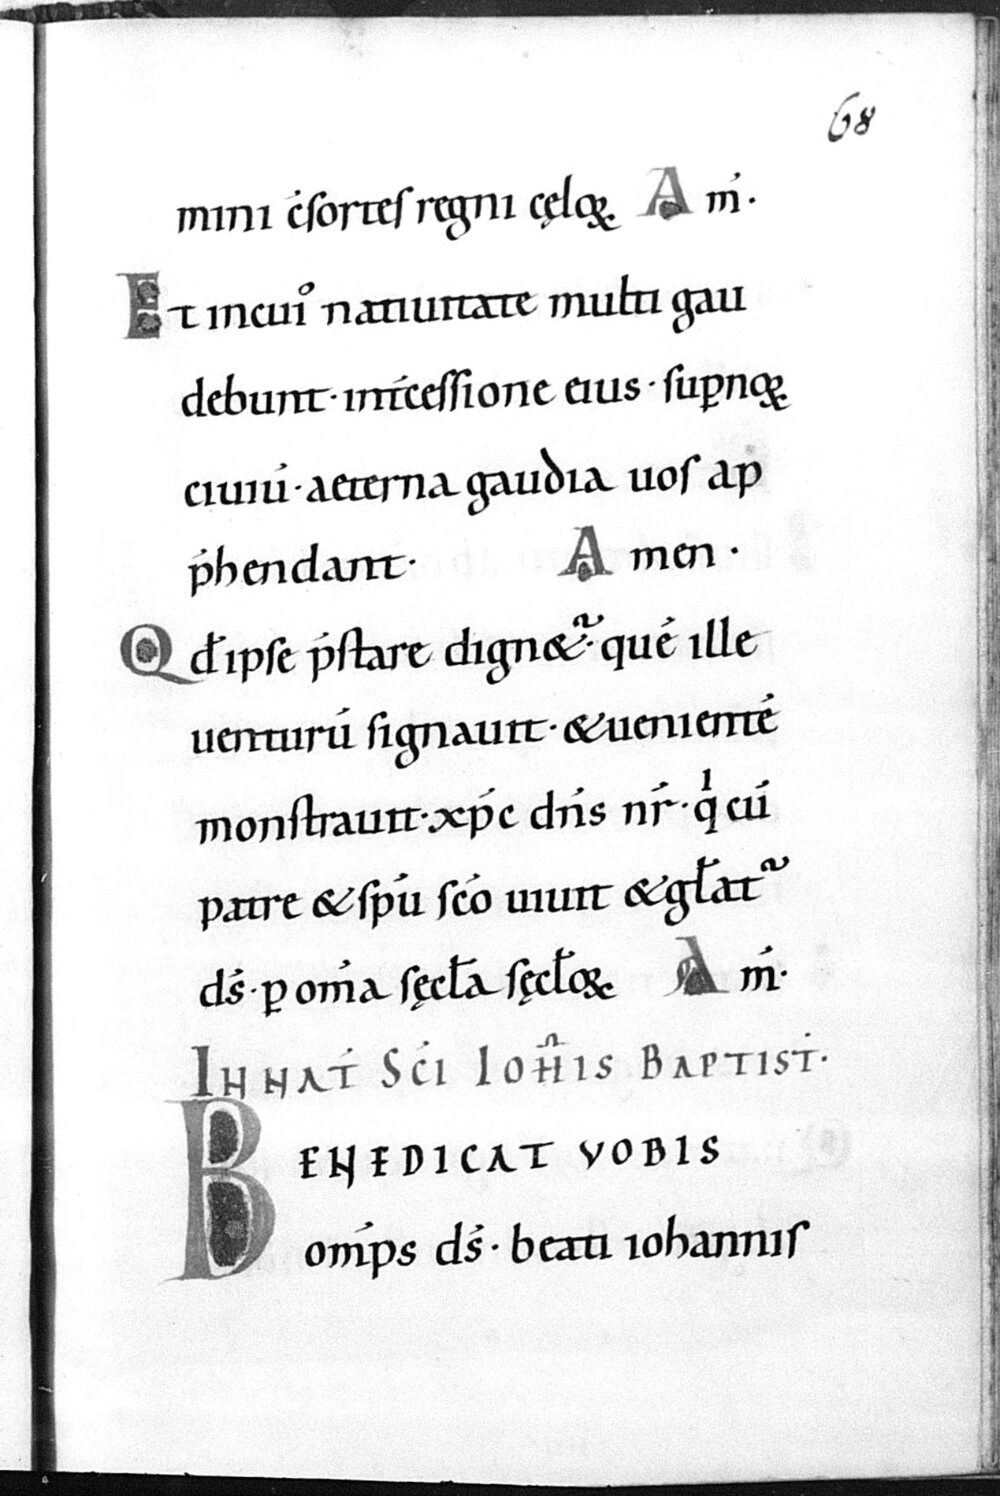 68
mini c̄sortes regni cęloꝝ Am̄.
Et in cuiꝰ natiuitate multi gau
debunt · int̄cessione eius · suꝑnoꝝ
ciuiū · aeterna gaudia uos ap
p̄hendant · Amen ·
Qđ ipse p̄stare digne&ᷣ · quē ille
uenturū signauit · & uenientē
monstrauit · xp̄c dn̄s nr̄ · qͥ cū
patre & sp̄u sc̄o uiuit & gl̄atᷣ
ds̄ · ꝑ om̄a sęcl̄a sęcl̄oꝝ Am̄ ·
IN NAT̄ SC̄I IOH̄IS BAPTIST̄ ·
BENEDICAT VOBIS
omp̄s ds̄ · beati iohannis